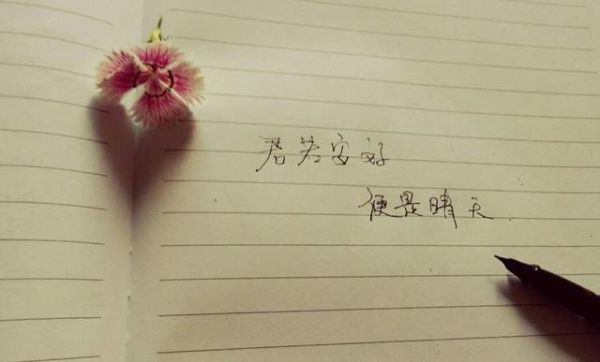 君若安好
便是晴天